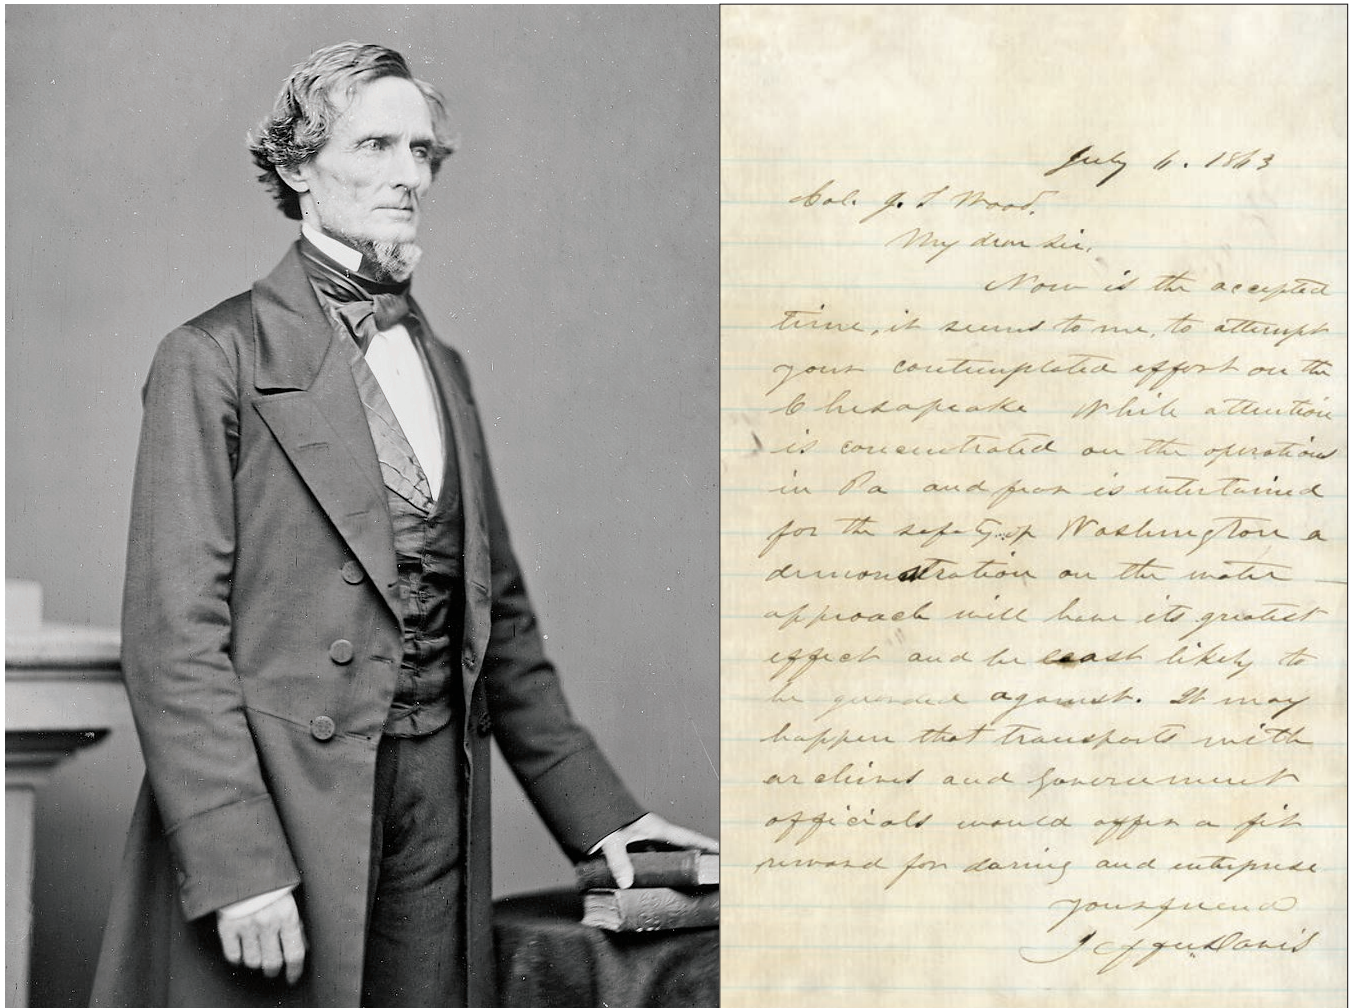 July 6. 1863
Col. J. T Wood.
My dear Sir,
Now is the accepted
time, it seems to me, to attempt
your contemplated effort on the
Chesapeake While attention
is concentrated on the operations
in Pa and fear is entertained
for the safety of Washington a
demonstration on the water
approach will have its greatest
effect and be least likely to
be guarded against. It may
happen that transports with
archives and Government
officials would offer a fit
reward for daring and enterprise
your friend
Jeffer Davis